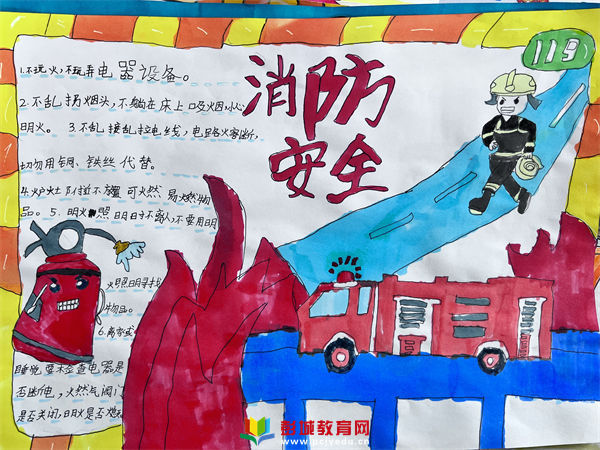 消防
安全
119
1.不玩火,不玩弄电器设备。
2.不乱扔烟头,不躺在床上吸烟,小心
明火。 3.不乱接乱拉电线,电路火容断,
切勿用铜、铁丝代替。
4.炉灶 不 可燃 易燃物
品。 5.明火 照明时不离人,不要用明
火照明寻找
物品。
6.离家或
睡觉要检查电器是
否断电,火燃气阀门
是否关闭,明火是否熄
彭城教育网
www.pcjyedu.cn